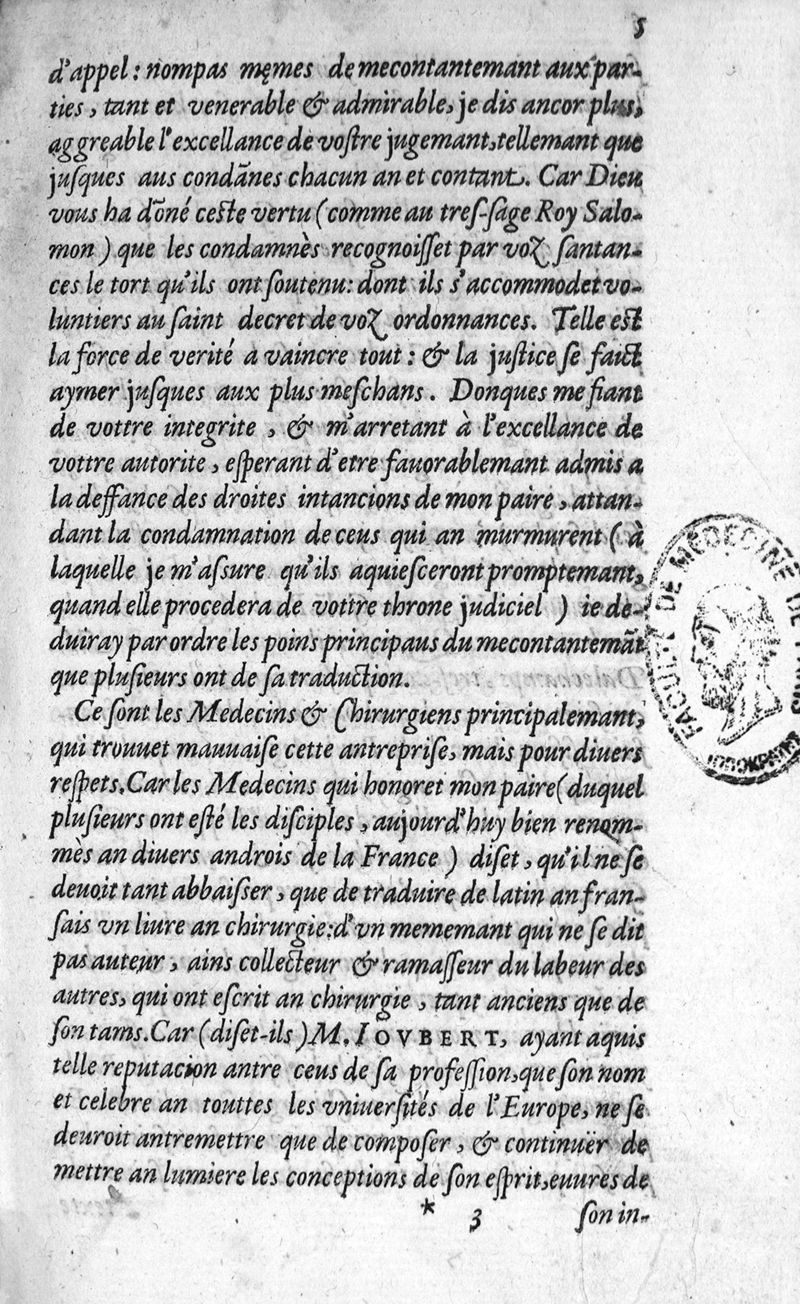 5
d'appel: nompas męmes de mecontantemant aux par-
ties, tant et venerable & admirable, je dis ancor plus,
aggreable l'excellance de voſtre jugemant, tellemant que
juſques aus condānes chacun an et contant. Car Dieu
vous ha dōné ceſte vertu (comme au treſ-ſage Roy Salo-
mon) que les condamnès recognoiſſet par voz ſantan-
ces le tort qu'ils ont ſoutenu: dont ils s'accommodet vo-
luntiers au ſaint decret de voz ordonnances. Telle eſt
la force de verité a vaincre tout: & la juſtice ſe faict
aymer juſques aux plus meſchans. Donques me fiant
de vottre integrite, & m'arretant à l'excellance de
vottre autorite, eſperant d'etre fauorablemant admis a
la deffance des droites intancions de mon paire, attan-
dant la condamnation de ceus qui an murmurent (à
laquelle je m'aſſure qu'ils aquieſceront promptemant,
quand elle procedera de vottre throne judiciel) ie de-
duiray par ordre les poins principaus du mecontantemāt
que pluſieurs ont de ſa traduction.
Ce ſont les Medecins & Chirurgiens principalemant,
qui trouuet mauuaiſe cette antrepriſe, mais pour diuers
reſpets. Car les Medecins qui honoret mon paire (duquel
pluſieurs ont eſté les diſciples, aujourd'huy bien renom-
mès an diuers androis de la France) diſet, qu'il ne ſe
deuoit tant abbaiſſer, que de traduire de latin an fran-
ſais vn liure an chirurgie: d'vn mememant qui ne ſe dit
pas auteur, ains collecteur & ramaſſeur du labeur des
autres, qui ont eſcrit an chirurgie, tant anciens que de
ſon tams. Car (diſet-ils) M. IOVBERT, ayant aquis
telle reputacion antre ceus de ſa profeſſion, que ſon nom
et celebre an touttes les vniuerſités de l'Europe, ne ſe
deuroit antremettre que de compoſer, & continuër de
mettre an lumiere les conceptions de ſon eſprit, euures de
* 3 ſon in-
FACULTÉ DE MÉDECINE DE PARIS